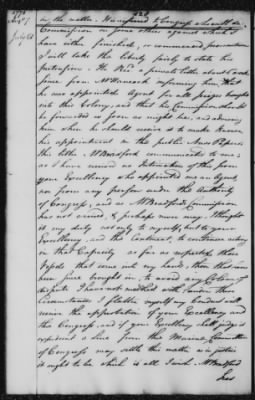 in the matter. Han'd [and] if Congress should
Commission on some others against which I
have either finished, or commenced prosecution
I will take the liberty fairly to state his
Instructions. He has a private letter about [ ]
from Mr Hancock informing him that
he was appointed Agent for all prizes brought
into this Colony, and that his Commission should
be forwarded as soon as might be, and advising
him when he should receive it to make known
his appointment in the public News Papers
this letter Mr Bradford communicated to me
as I have received no Intimation of this from
your Excellency who appointed me an Agent
nor from any person under the Authority
of Congress, and as Mr Bradfords Commission
has not arrived, & perhaps never may, I thought
it my duty not only to myself, but to your
Excellency, and the Continent, to continue acting
in that Capacity as far as respected those
Vessels that came into my hands, those that have
been since brought in, to avoid any
dispute I have not meddled with. Under these
Circumstances I flatter myself my Conduct will
receive the approbation of your Excellency and
the Congress, and if your Excellency shall judge it
expedient a Line from the Marine Committee
of Congress may settle this matter as in justice
it ought to be which is all I wish. Mr Bradford